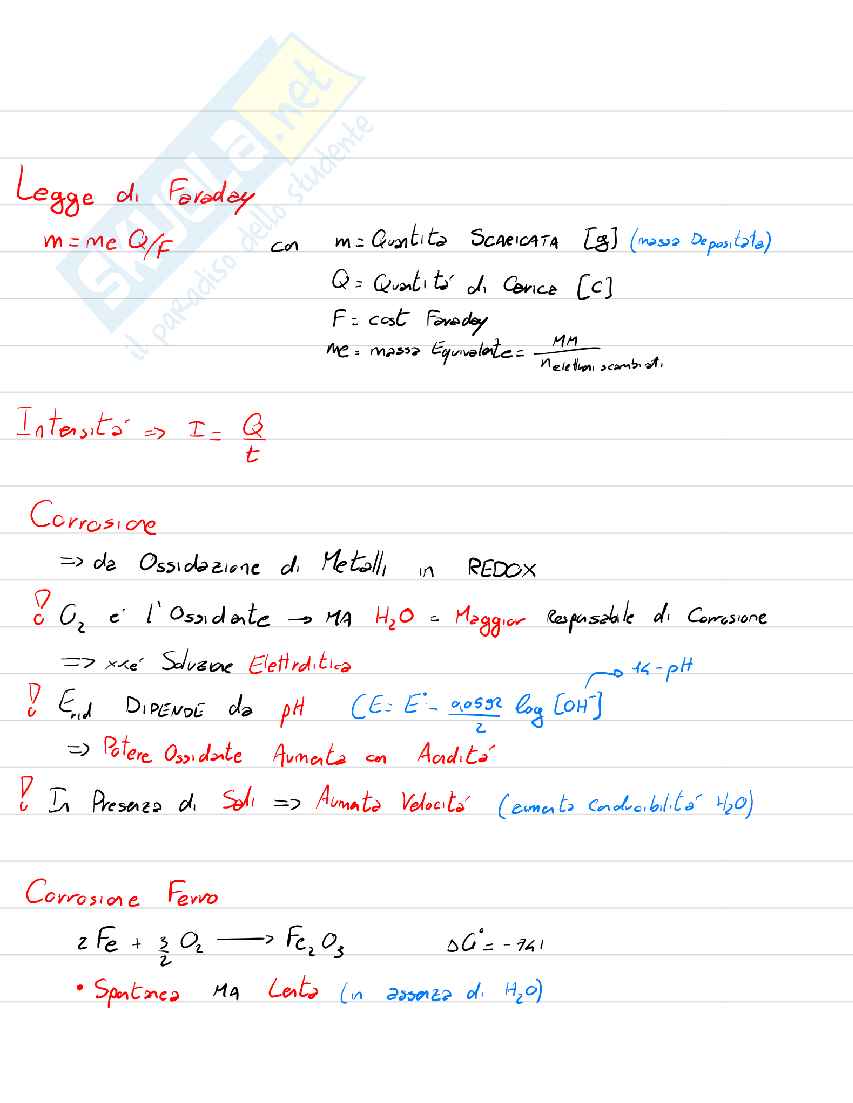 SKUOLA.net
il paradiso dello studente
Legge di Faraday
m = me Q/F con m = Quantità SCARICATA [g] (massa Depositata)
Q = Quantità di Carica [C]
F = cost Faraday
me = massa Equivalente = MM / n elettroni scambiati
Intensità => I = Q / t
Corrosione
=> da Ossidazione di Metalli in REDOX
! O₂ è l'Ossidante → MA H₂O = Maggior Responsabile di Corrosione
=> xké Soluzione Elettrolitica
! E_rid DIPENDE da pH (E = E° - 0,0592/2 log [OH⁻] → 14-pH
=> Potere Ossidante Aumenta con Acidità
! In Presenza di Sali => Aumenta Velocità (aumenta conducibilità H₂O)
Corrosione Ferro
2 Fe + 3/2 O₂ → Fe₂O₃ ΔG° = -741
• Spontanea MA Lenta (in assenza di H₂O)